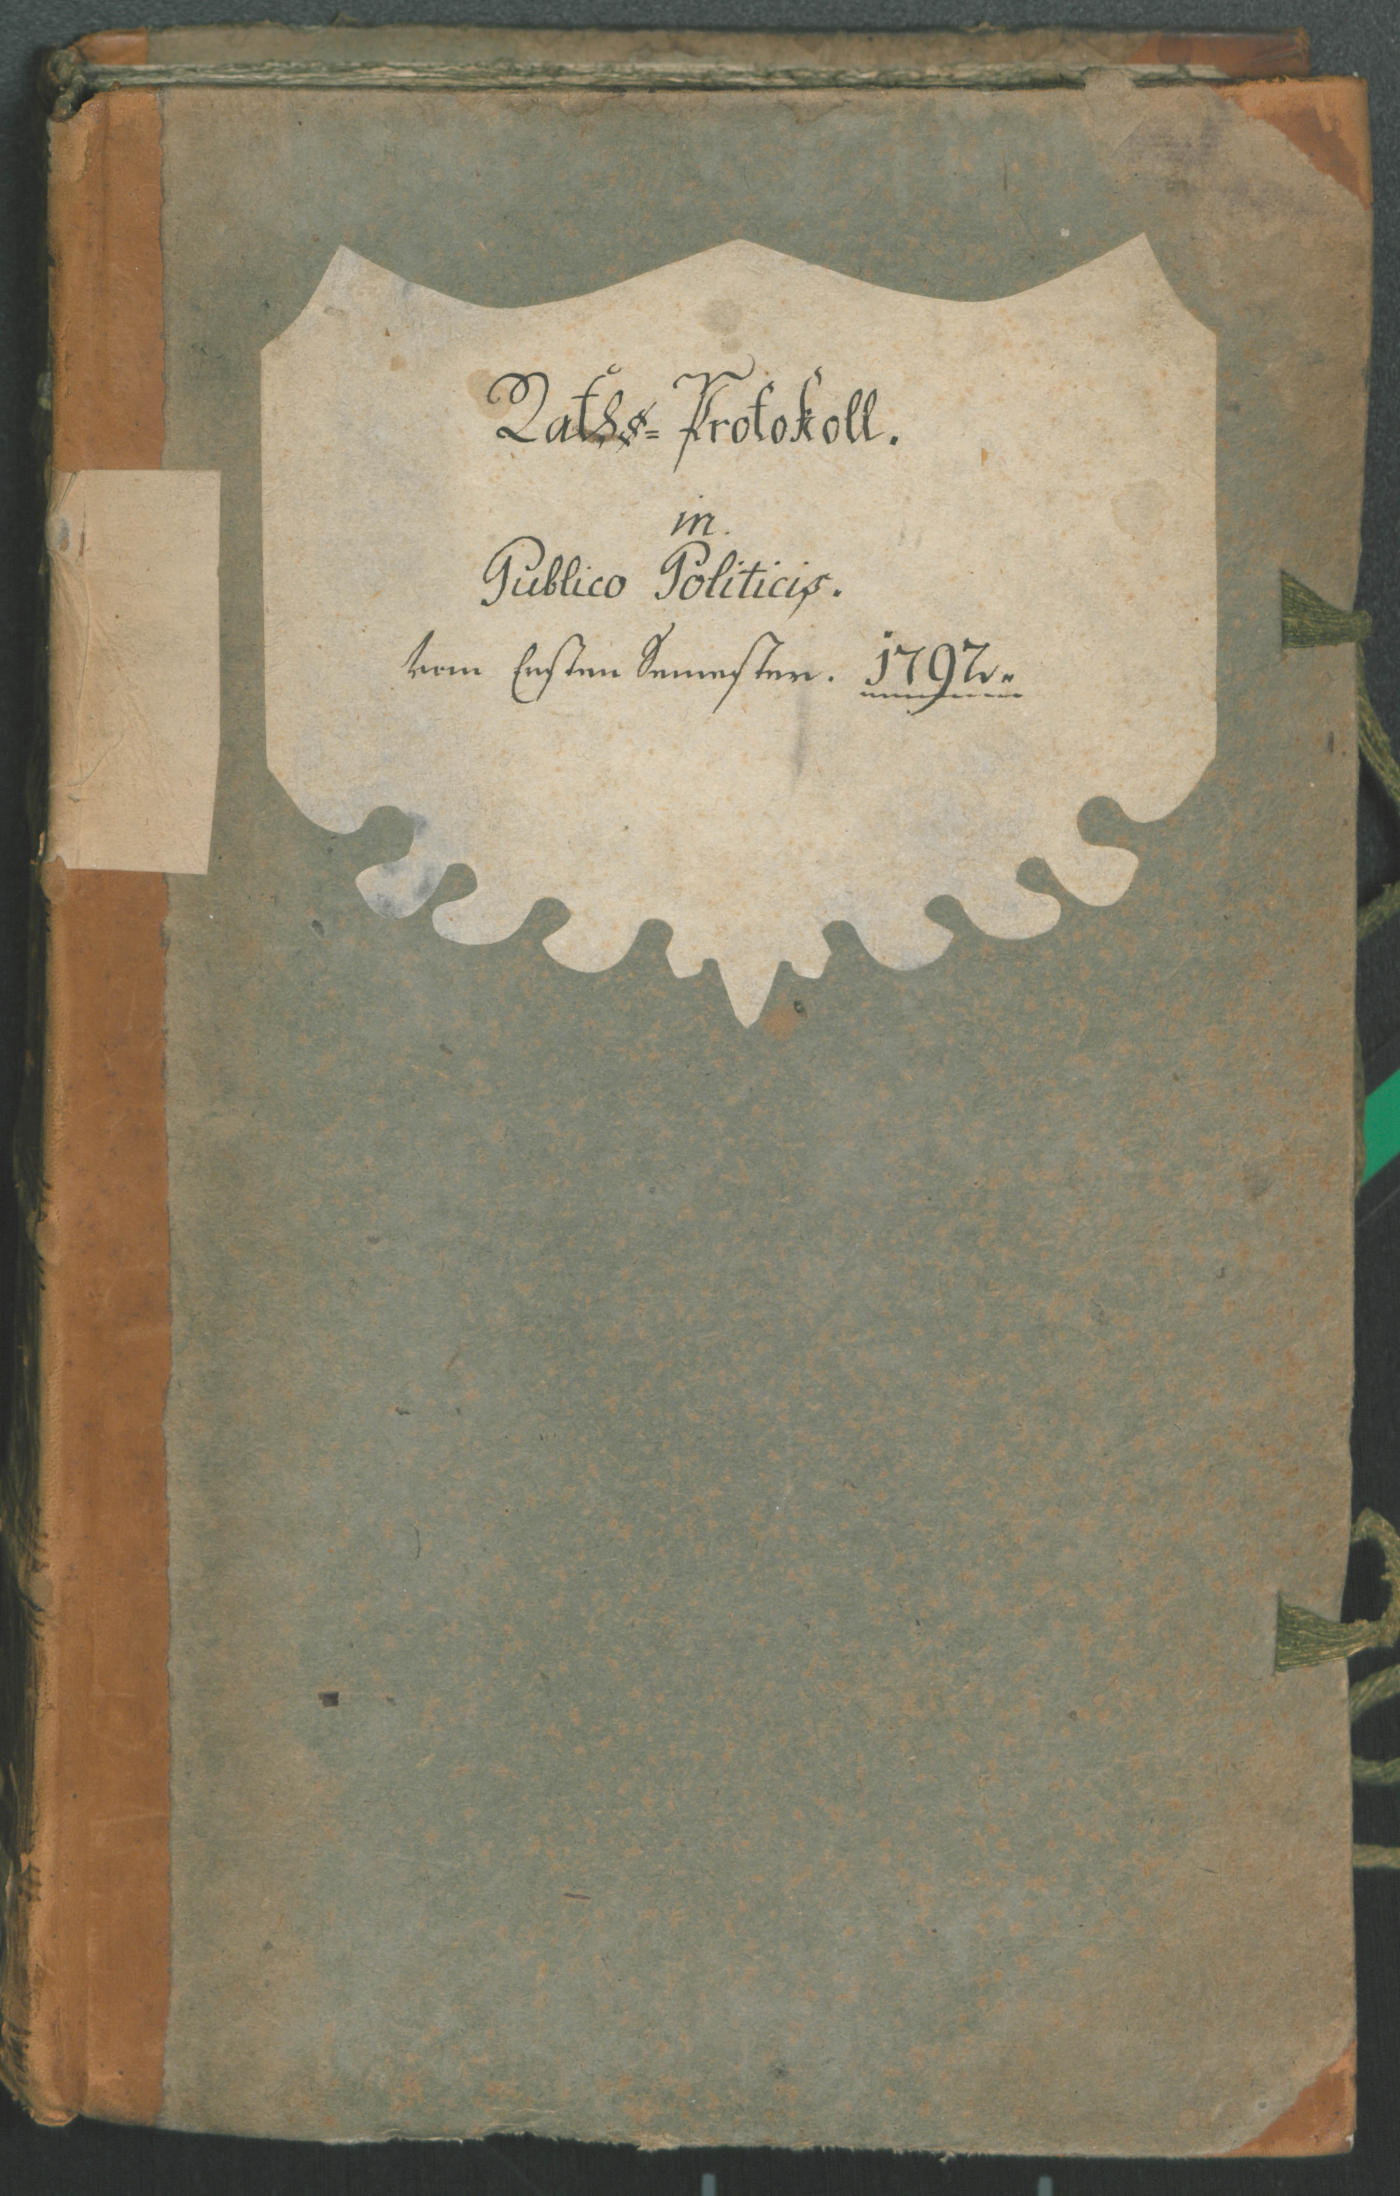 Raths= Protokoll.
in.
Publico Politicis.
vom Ersten Semester. 1797.